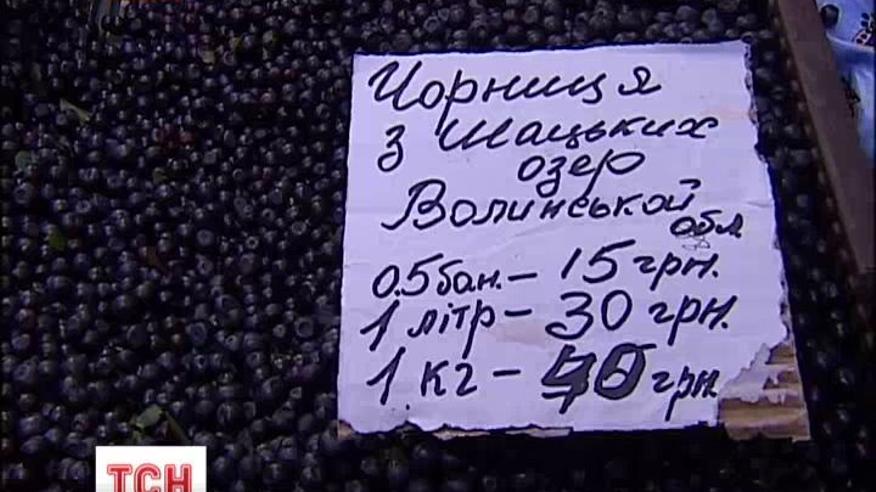 Чорниця
з Шацьких
озер
Волинської
обл.
0.5 бан. – 15 грн.
1 літр – 30 грн.
1 кг – грн.
ТСН